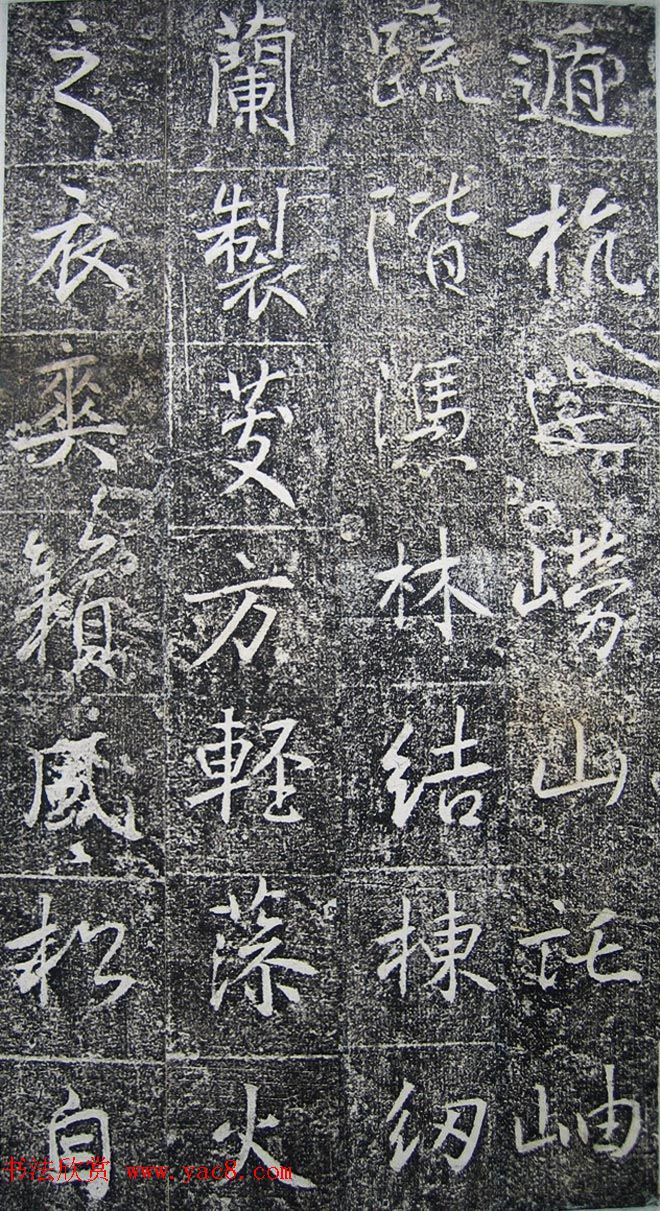 遁杭嶗山託岫
踈階馮林結棟紉
蘭製芰方輕藻火
之衣爽籟風松自
书法欣赏 www.yac8.com